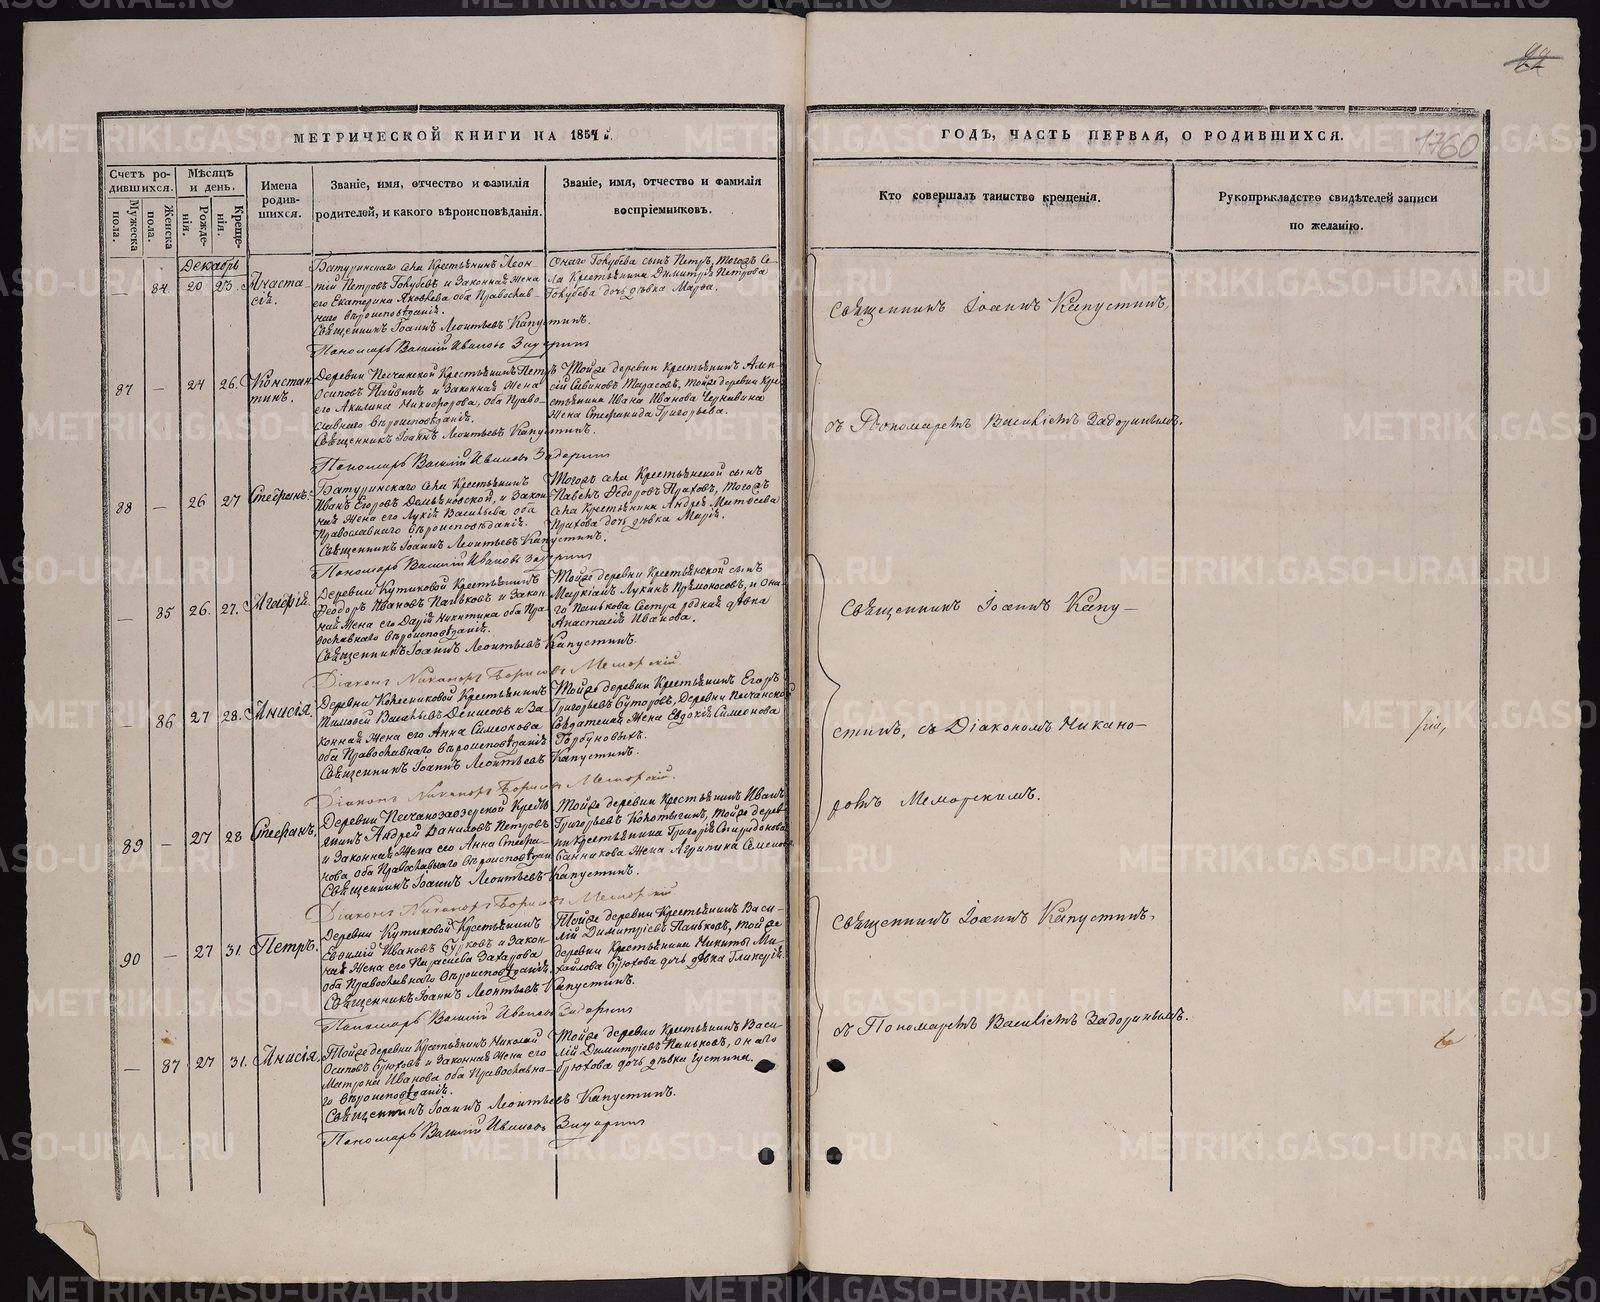 1760
МЕТРИЧЕСКОЙ КНИГИ НА 1854й
ГОДЪ, ЧАСТЬ ПЕРВАЯ, О РОДИВШИХСЯ.
Счетъ родившихся.
Мѣсяцъ и день.
Имена родившихся.
Званіе, имя, отчество и фамилія родителей, и какого вѣроисповѣданія.
Званіе, имя, отчество и фамилія воспріемниковъ.
Кто совершалъ таинство крещенія.
Рукоприкладство свидѣтелей записи по желанію.
Мужеска пола.
Женска пола.
Рожденія.
Крещенія.
Декабрь
— 84 20 23. Анастасія.
Батуринскаго села Крестьянинъ Леонтій Петровъ Голубевъ и Законная жена
его Екатерина Яковлева оба Православнаго вѣроисповѣданія.
Онаго Голубева сынъ Петръ, тогожъ села Крестьянина Димитрія Петрова
Голубева дочь дѣвка Марѳа.
Священникъ Іоаннъ Леонтьевъ Капустинъ.
Пономарь Василій Ивановъ Задоринъ
Священникъ Іоаннъ Капустинъ,
87 — 24 26. Константинъ.
Деревни Песчанской Крестьянинъ Петръ
Осиповъ и Законная жена
его Акилина Никифорова, оба Православнаго вѣроисповѣданія.
Тойже деревни крестьянинъ
Савиновъ Тарасовъ, тойже деревни крестьянина Ивана Иванова
жена Стефанида Григорьева.
Священникъ Іоаннъ Леонтьевъ Капустинъ.
Пономарь Василій Ивановъ Задоринъ
съ Пономаремъ Василіемъ Задоринымъ.
88 — 26 27 Стефанъ.
Батуринскаго села Крестьянинъ
Иванъ Егоровъ Демьяновской, и Законная жена его Лукія Васильева оба
Православнаго вѣроисповѣданія.
Тогожъ села Крестьянской сынъ
Павелъ Ѳедоровъ Праховъ, тогожъ
села крестьянина Андрея Матѳеева
Прахова дочь дѣвка Марія.
Священникъ Іоаннъ Леонтьевъ Капустинъ.
Пономарь Василій Ивановъ Задоринъ
— 85 26. 27. Агафія.
Деревни Кутиковой Крестьянинъ
Ѳеодоръ Ивановъ Паньковъ и Законная жена его Дарія Никитина оба Православнаго вѣроисповѣданія.
Тойже деревни Крестьянской сынъ
Маркіанъ Лукинъ Прямоносовъ, и онаго Панькова сестра родная дѣвка
Анастасія Иванова.
Священникъ Іоаннъ Леонтьевъ Капустинъ.
Діаконъ Никаноръ Борисовъ Меморскій.
Священникъ Іоаннъ Капу-
— 86 27 28. Анисія.
Деревни Колесниковой Крестьянинъ
Тимоѳей Васильевъ Денисовъ и Законная жена его Анна Симеонова
оба Православнаго вѣроисповѣданія
Тойже деревни Крестьянинъ Егоръ
Григорьевъ Суторовъ, Деревни Песчанской
Солдатская жена Евдокія Симеонова
Горбуновыхъ.
Священникъ Іоаннъ Леонтьевъ Капустинъ.
Діаконъ Никаноръ Борисовъ Меморскій.
стинъ, съ Діакономъ Никано-
ромъ Меморскимъ.
89 — 27 28 Стефанъ.
Деревни Песчанозаозерской Крестьянинъ Андрей Даниловъ Петровъ
и Законная жена его Анна Стефанова оба Православнаго вѣроисповѣданія
Тойже деревни Крестьянинъ Иванъ
Григорьевъ Колотыгинъ, тойже деревни крестьянина Григорія Спиридонова
Банникова жена Агрипина Семенова
Священникъ Іоаннъ Леонтьевъ Капустинъ.
Діаконъ Никаноръ Борисовъ Меморскій
90 — 27 31. Петръ.
Деревни Кутиковой Крестьянинъ
Евѳимій Ивановъ и Законная жена его Параскева Захарова
оба Православнаго вѣроисповѣданія.
Тойже деревни Крестьянинъ Василій Димитріевъ Паньковъ, тойже
деревни Крестьянина Никиты Михайлова Брюхова дочь дѣвка Гликерія.
Священникъ Іоаннъ Леонтьевъ Капустинъ.
Пономарь Василій Ивановъ Задоринъ
Священникъ Іоаннъ Капустинъ,
— 87 27 31. Анисія
Тойже деревни Крестьянинъ Николай
Осиповъ Брюховъ и Законная жена его
Матрона Иванова оба Православнаго вѣроисповѣданія.
Тойже деревни Крестьянинъ Василій Димитріевъ Паньковъ, онаго
Брюхова дочь дѣвка Устина.
Священникъ Іоаннъ Леонтьевъ Капустинъ.
Пономарь Василій Ивановъ Задоринъ
съ Пономаремъ Василіемъ Задоринымъ.
METRIKI.GASO-URAL.RU